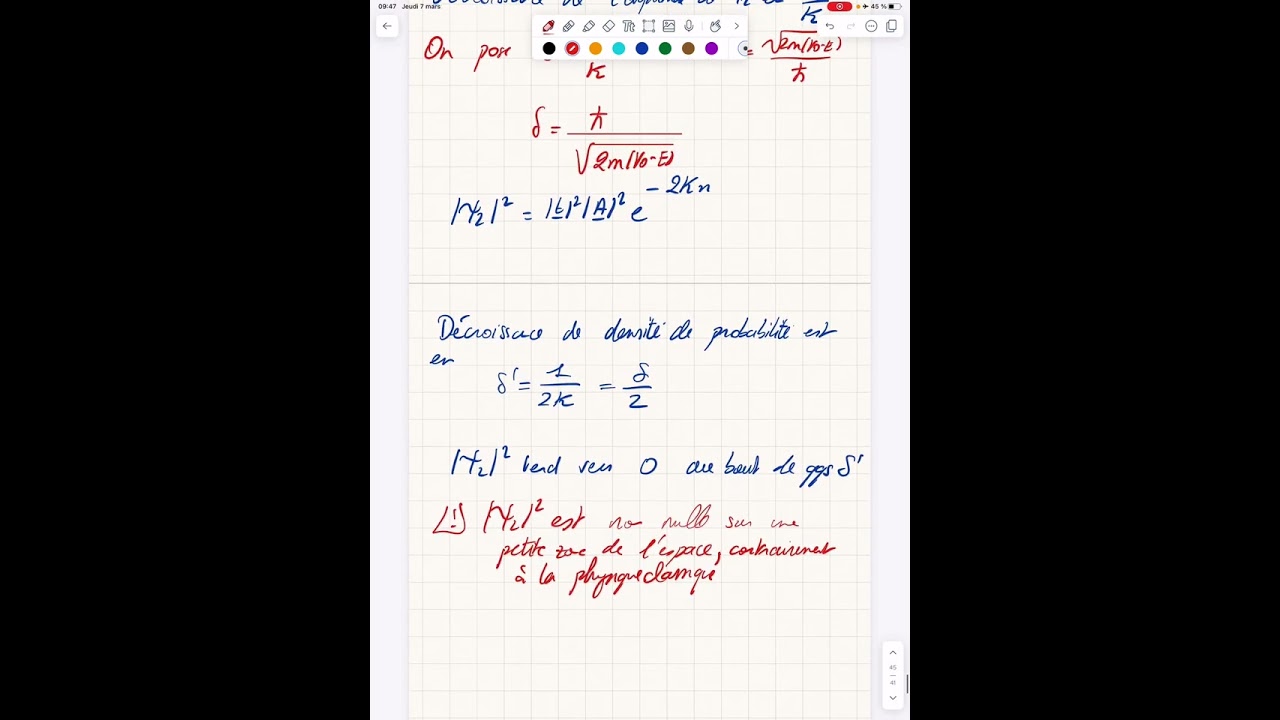 09:47 Jeudi 7 mars 45 %
de l'espace
K
On pose = √2m(V0-E)
K ħ
δ = ħ
√2m(V0-E)
|Ψ2|² = |t|²|A|² e^-2Kx
Décroissance de densité de probabilité est
en
δ' = 1/2K = δ/2
|Ψ2|² tend vers 0 au bout de qqs δ'
⚠ |Ψ2|² est non nulle sur une
petite zone de l'espace, contrairement
à la physique classique
45
41